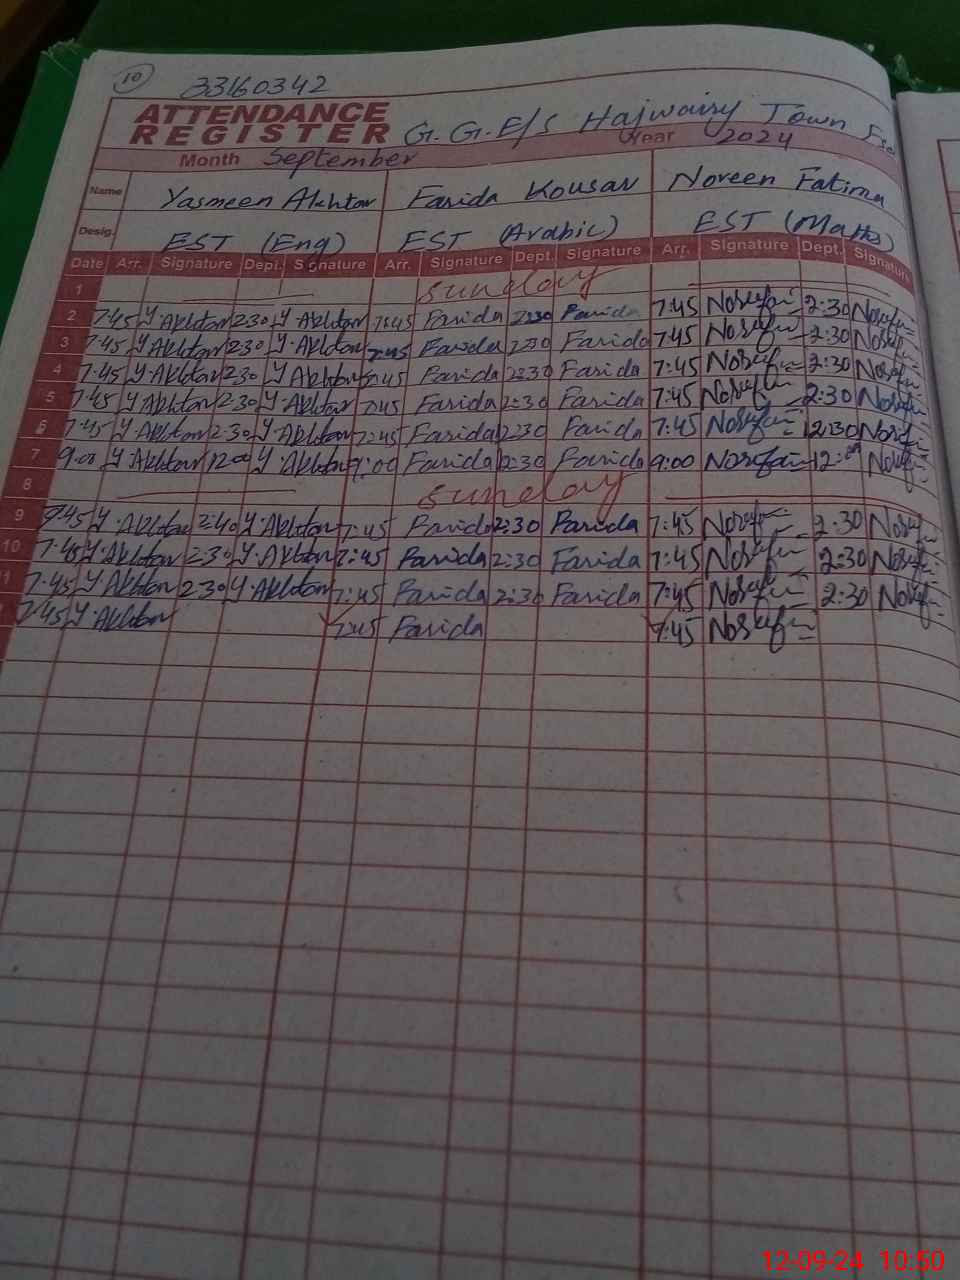 10 33160342
ATTENDANCE REGISTER G.G.E/S Hajwairy Town
Month September Year 2024
Name Yasmeen Akhtar Farida Kousar Noreen Fatima
Desig. EST (Eng) EST (Arabic) EST (Maths)
Date Arr. Signature Dept. Signature Arr. Signature Dept. Signature Arr. Signature Dept. Signature
1 sunday
2 7:45 Y.Akhtar 2:30 Y.Akhtar 7:45 Farida 2:30 Farida 7:45 2:30
3 7:45 Y.Akhtar 2:30 Y.Akhtar 7:45 Farida 2:30 Farida 7:45 2:30
4 7:45 Y.Akhtar 2:30 Y.Akhtar 7:45 Farida 2:30 Farida 7:45 2:30
5 7:45 Y.Akhtar 2:30 Y.Akhtar 7:45 Farida 2:30 Farida 7:45 2:30
6 7:45 Y.Akhtar 2:30 Y.Akhtar 7:45 Farida 2:30 Farida 7:45 12:30
7 9:00 Y.Akhtar 12:00 Y.Akhtar 9:00 Farida 2:30 Farida 9:00 12:00
8 sunday
9 7:45 Y.Akhtar 2:40 Y.Akhtar 7:45 Farida 2:30 Farida 7:45 2:30
10 7:45 Y.Akhtar 2:30 Y.Akhtar 7:45 Farida 2:30 Farida 7:45 2:30
11 7:45 Y.Akhtar 2:30 Y.Akhtar 7:45 Farida 2:30 Farida 7:45 2:30
7:45 Y.Akhtar 7:45 Farida 7:45
12-09-24 10:50